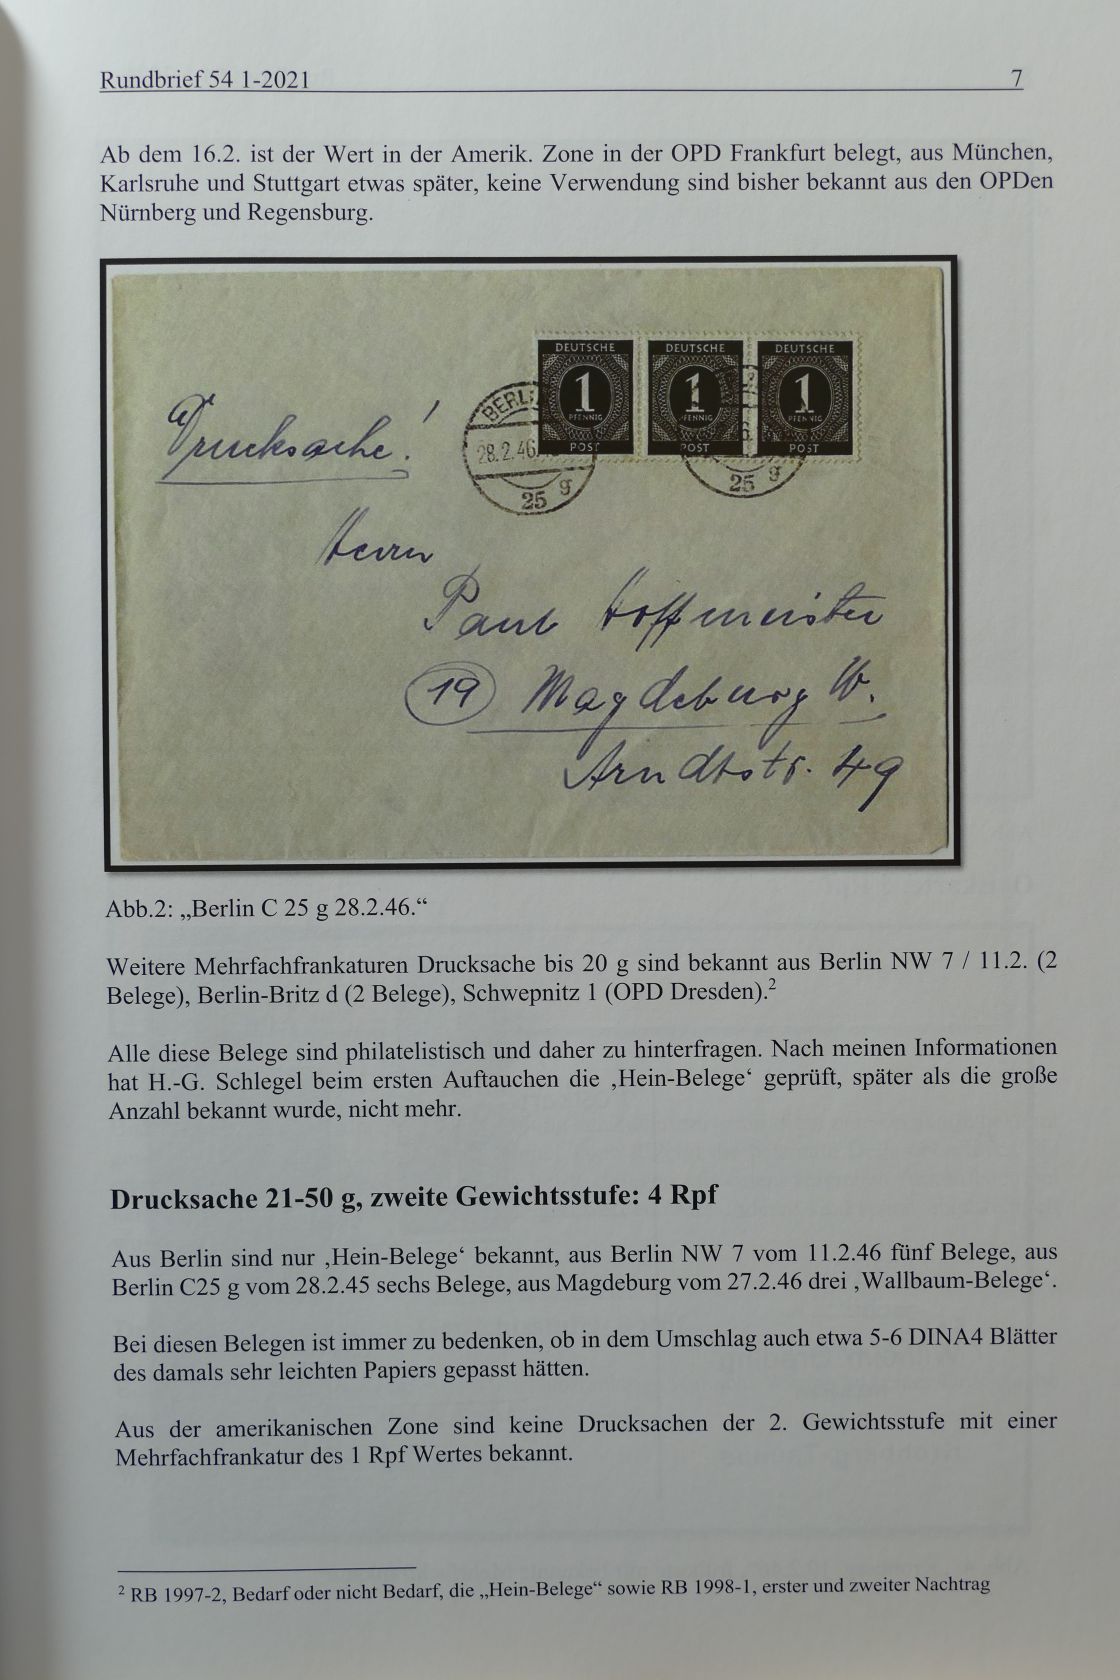 Rundbrief 54 1-2021 7
Ab dem 16.2. ist der Wert in der Amerik. Zone in der OPD Frankfurt belegt, aus München,
Karlsruhe und Stuttgart etwas später, keine Verwendung sind bisher bekannt aus den OPDen
Nürnberg und Regensburg.
DEUTSCHE DEUTSCHE DEUTSCHE
1 1 1
PFENNIG PFENNIG PFENNIG
POST POST POST
BERLI
28.2.46
25 g 25 g
Drucksache!
Herrn
Paul Hoffmeister
19 Magdeburg W.
Arndtstr. 49
Abb.2: „Berlin C 25 g 28.2.46.“
Weitere Mehrfachfrankaturen Drucksache bis 20 g sind bekannt aus Berlin NW 7 / 11.2. (2
Belege), Berlin-Britz d (2 Belege), Schwepnitz 1 (OPD Dresden).²
Alle diese Belege sind philatelistisch und daher zu hinterfragen. Nach meinen Informationen
hat H.-G. Schlegel beim ersten Auftauchen die ‚Hein-Belege‘ geprüft, später als die große
Anzahl bekannt wurde, nicht mehr.
Drucksache 21-50 g, zweite Gewichtsstufe: 4 Rpf
Aus Berlin sind nur ‚Hein-Belege‘ bekannt, aus Berlin NW 7 vom 11.2.46 fünf Belege, aus
Berlin C25 g vom 28.2.45 sechs Belege, aus Magdeburg vom 27.2.46 drei ‚Wallbaum-Belege‘.
Bei diesen Belegen ist immer zu bedenken, ob in dem Umschlag auch etwa 5-6 DINA4 Blätter
des damals sehr leichten Papiers gepasst hätten.
Aus der amerikanischen Zone sind keine Drucksachen der 2. Gewichtsstufe mit einer
Mehrfachfrankatur des 1 Rpf Wertes bekannt.
² RB 1997-2, Bedarf oder nicht Bedarf, die „Hein-Belege“ sowie RB 1998-1, erster und zweiter Nachtrag